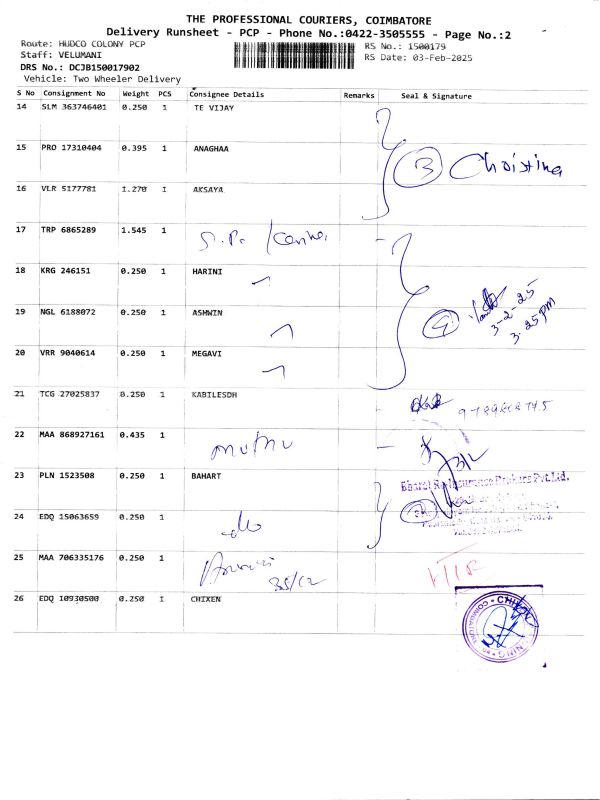 THE PROFESSIONAL COURIERS, COIMBATORE
Delivery Runsheet - PCP - Phone No.:0422-3505555 - Page No.:2
Route: HUDCO COLONY PCP
RS No.: 1500179
Staff: VELUMANI
RS Date: 03-Feb-2025
DRS No.: DCJB150017902
Vehicle: Two Wheeler Delivery
S No Consignment No Weight PCS Consignee Details Remarks Seal & Signature
14 SLM 363746401 0.250 1 TE VIJAY
15 PRO 17310404 0.395 1 ANAGHAA
3 Christina
16 VLR 5177781 1.270 1 AKSAYA
17 TRP 6865289 1.545 1
18 KRG 246151 0.250 1 HARINI
19 NGL 6188072 0.250 1 ASHWIN
4 3-2-25
3.25pm
20 VRR 9040614 0.250 1 MEGAVI
21 TCG 27025837 0.250 1 KABILESDH
22 MAA 868927161 0.435 1 muthu
23 PLN 1523508 0.250 1 BAHART
24 EDQ 15063659 0.250 1
25 MAA 706335176 0.250 1
26 EDQ 10930500 0.250 1 CHIXEN